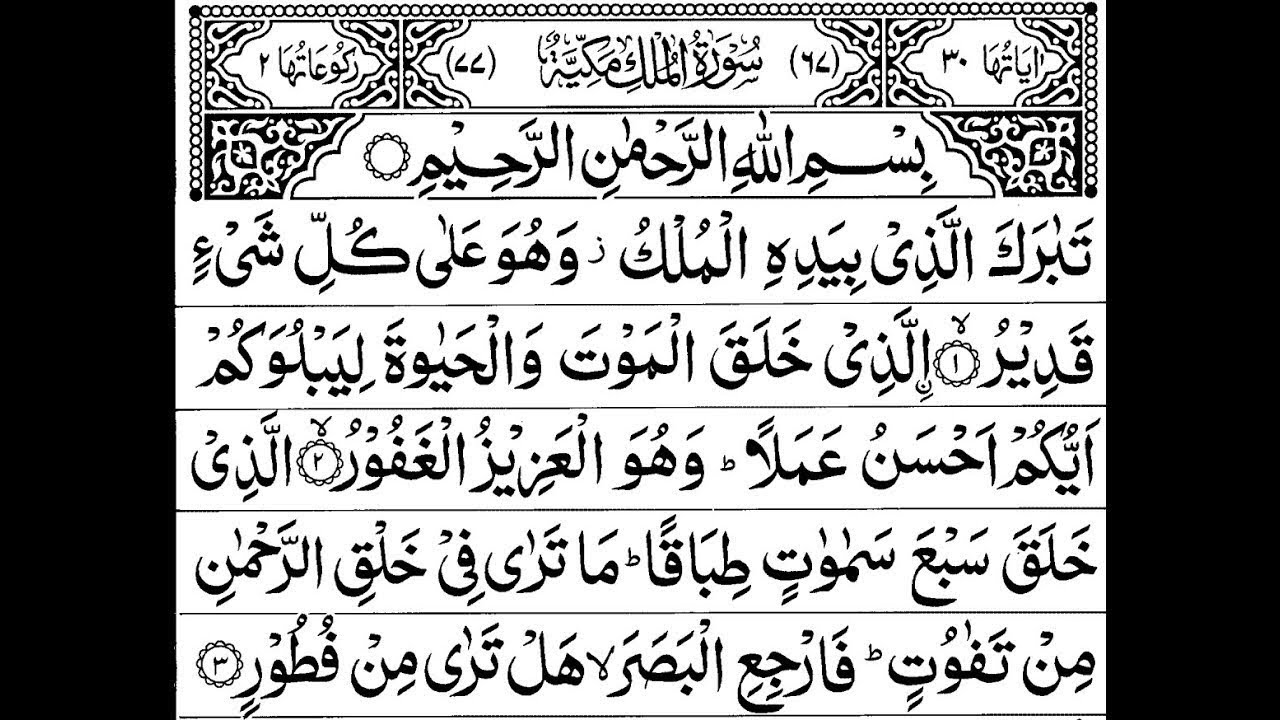 اٰيَاتُهَا ٣٠ (٦٧) سُوْرَةُ الْمُلْكِ مَكِّيَّةٌ (٧٧) رَكُوْعَاتُهَا ٢
بِسْمِ اللّٰهِ الرَّحْمٰنِ الرَّحِيْمِ
تَبٰرَكَ الَّذِىْ بِيَدِهِ الْمُلْكُ ز وَهُوَ عَلٰى كُلِّ شَىْءٍ
قَدِيْرُ ۙ﴿١﴾ اۨلَّذِىْ خَلَقَ الْمَوْتَ وَالْحَيٰوةَ لِيَبْلُوَكُمْ
اَيُّكُمْ اَحْسَنُ عَمَلًا ؕ وَهُوَ الْعَزِيْزُ الْغَفُوْرُ ۙ﴿٢﴾ الَّذِىْ
خَلَقَ سَبْعَ سَمٰوٰتٍ طِبَاقًا ؕ مَا تَرٰى فِىْ خَلْقِ الرَّحْمٰنِ
مِنْ تَفٰوُتٍ ؕ فَارْجِعِ الْبَصَرَ ۙ هَلْ تَرٰى مِنْ فُطُوْرٍ ﴿٣﴾